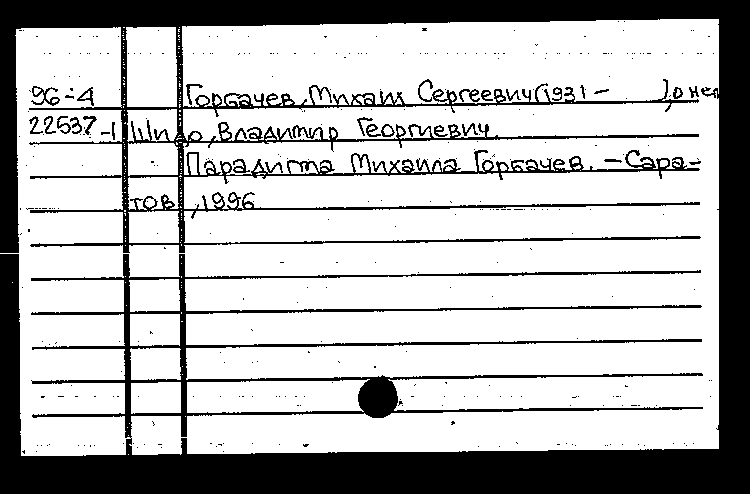 96-4 Горбачев, Михаил Сергеевич (1931 - ), о нем
22537-1 Шидо, Владимир Георгиевич.
Парадигма Михаила Горбачев. - Сара-
тов, 1996